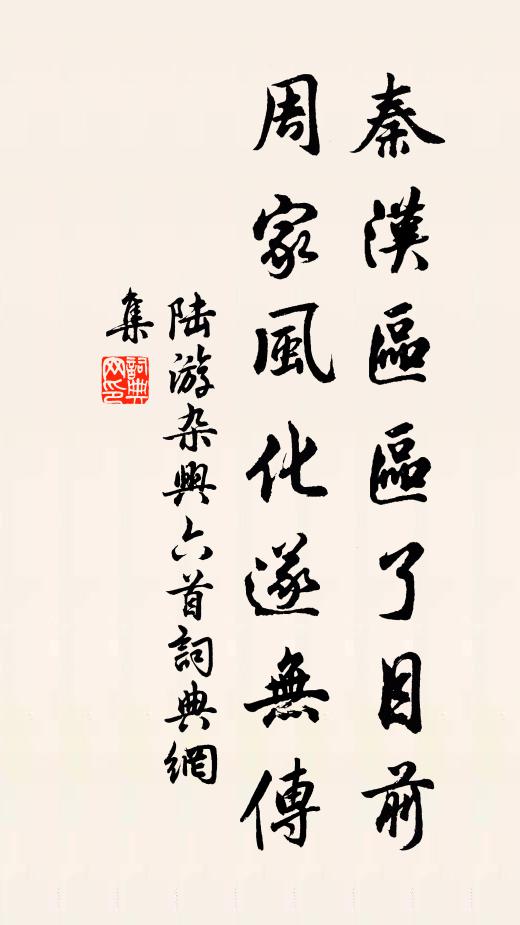 秦漢區區了目前
周家風化遂無傳
陆游杂興六首詞典網
集
詞典网印